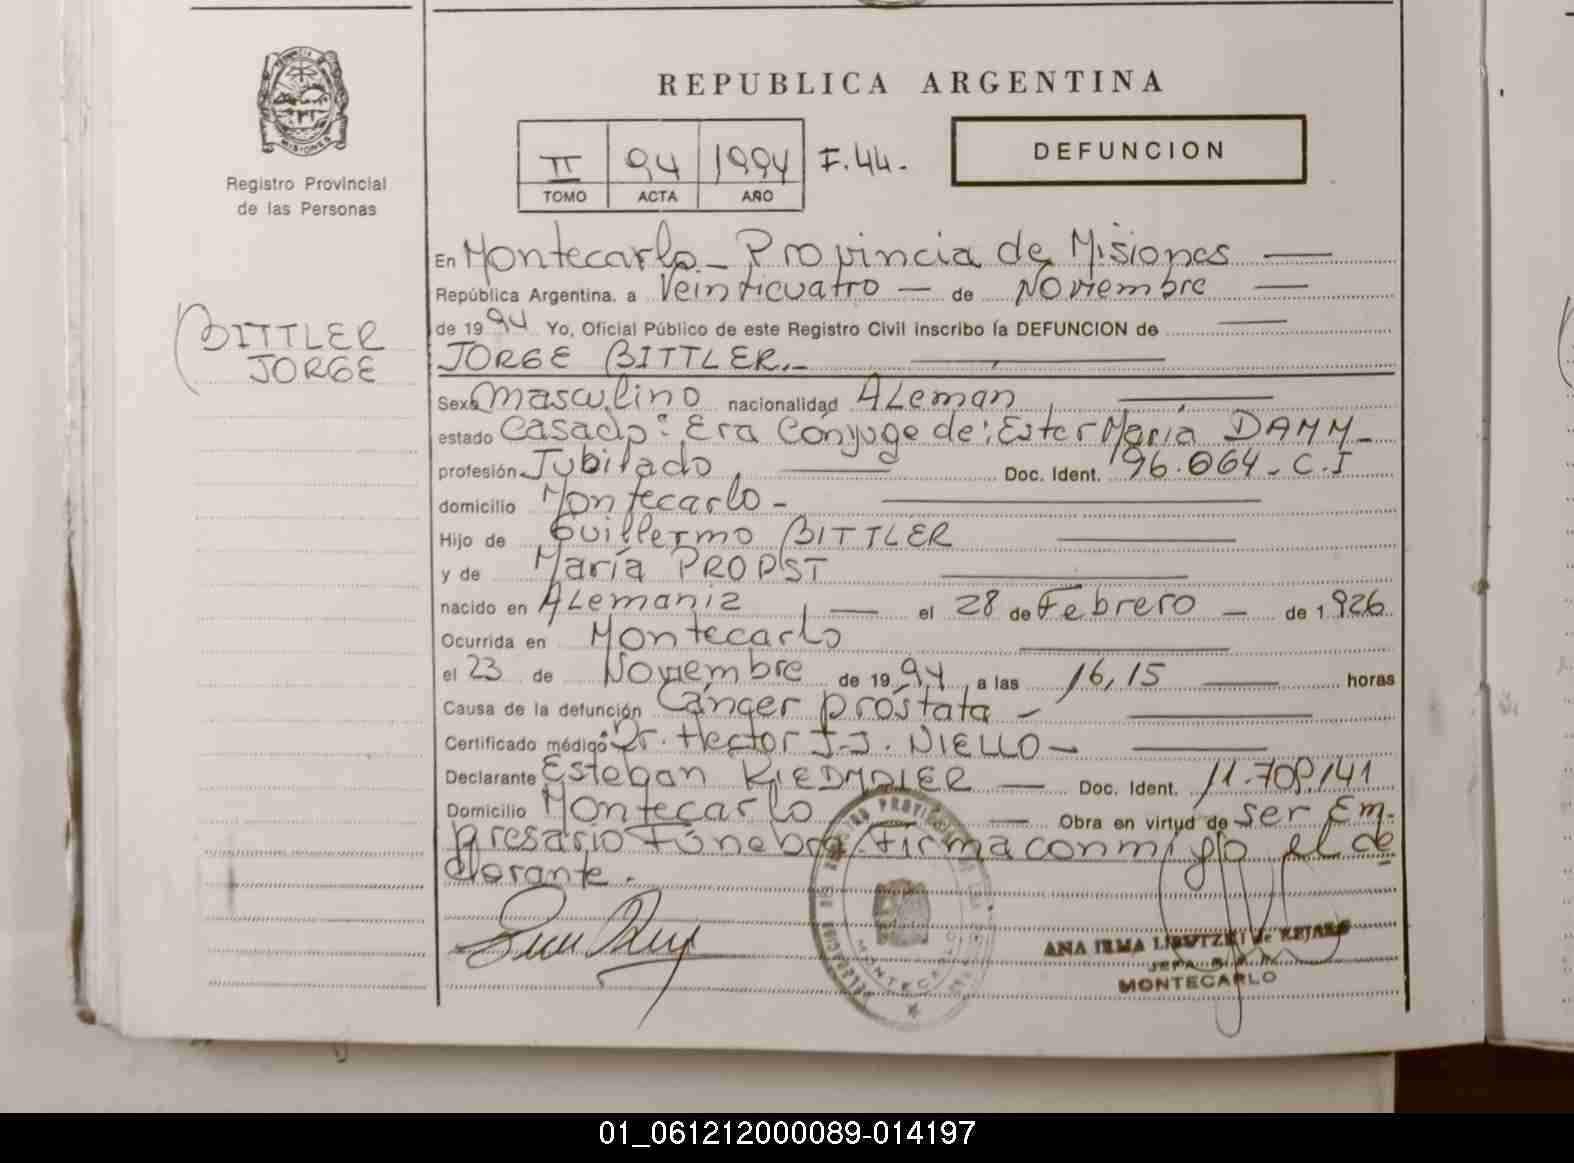 REPUBLICA ARGENTINA
II 94 1994 F.44.-
TOMO ACTA AÑO
DEFUNCION
MISIONES
Registro Provincial
de las Personas
BITTLER
JORGE
En Montecarlo - Provincia de Misiones
República Argentina. a Veinticuatro — de Noviembre
de 1994 Yo, Oficial Público de este Registro Civil inscribo la DEFUNCION de
JORGE BITTLER.-
Sexo masculino nacionalidad ALeman
estado Casado: Era Cónyuge de: Ester María DAMM-
profesión Jubilado Doc. Ident. 96.064-C.I
domicilio Montecarlo-
Hijo de Guillermo BITTLER
y de María PROPST
nacido en ALemania el 28 de Febrero — de 1.926
Ocurrida en Montecarlo
el 23 de Noviembre de 1994 a las 16,15 horas
Causa de la defunción Cánger próstata -
Certificado médico Dr. Hector J.J. NIELLO -
Declarante Esteban RIEDMAIER — Doc. Ident. 11.708.141
Domicilio Montecarlo — Obra en virtud de ser Em-
presario Fúnebre/Firma conmigo el de
clarante.
MONTECARLO
ANA IRMA de
JEFA
MONTECARLO
01_061212000089-014197